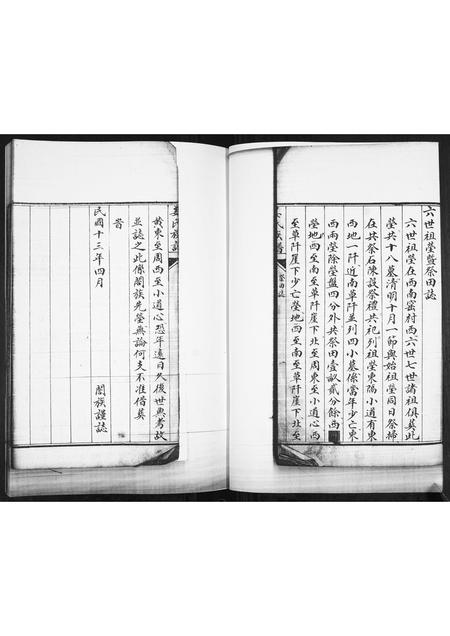 六世祖塋盤祭田誌
六世祖塋在西南窑村西六世七世諸祖俱葬此
塋共十八墓清明十月一節與始祖塋同日祭掃
在共祭石陳設祭禮共祀列祖塋東隔小道有東
西地一阡近南草阡並列四小墓係當年少亡東
西兩塋除塋盤四分外共祭田壹畝貳分餘西
塋地西至南至草阡崖下北至周東至小道心西
至草阡崖下少亡塋地西至南至草阡崖下北至
祭田誌
黃東至周西至小道心恐年遠日久後世無考故
並誌之此係闔族先塋無論何支不准借葬
昔
民國十三年四月 闔族謹誌
氏族譜